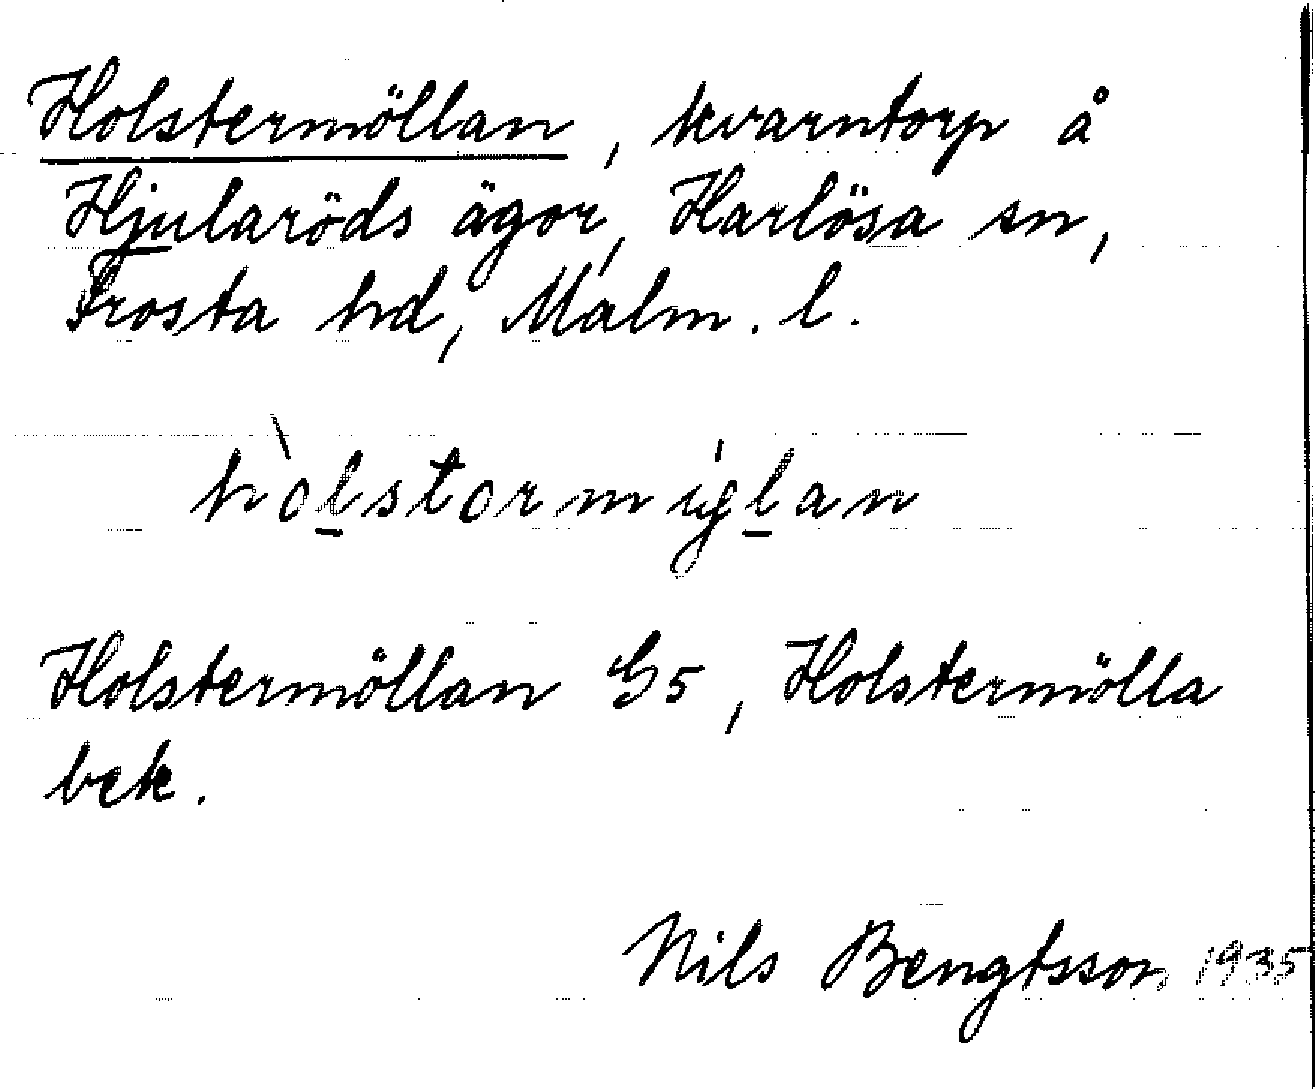 Holstermöllan, kvarntorp å
Hjularöds ägor, Harlösa sn,
Frosta hd, Malm. l.
Holstermöllan G5, Holstermölla
bek.
Nils Bengtsson 1935